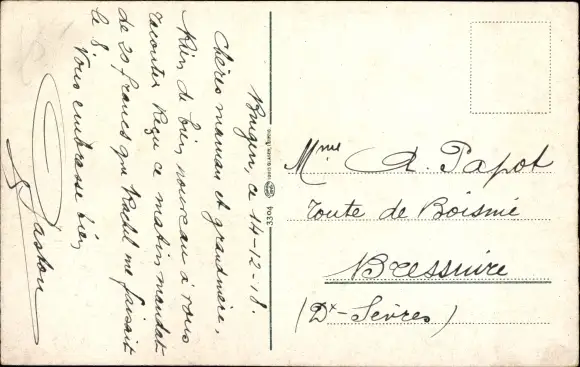 Bingen, ce 14-12-18.
Chères maman et grandmère,
Rien de bien nouveau à vous
raconter. Reçu ce matin mandat
de 20 francs que Rachel me faisait
le 8.
Vous embrasse bien
Gaston
3304
Mme A. Papot
route de Boismé
Bressuire
(Dx-Sèvres)